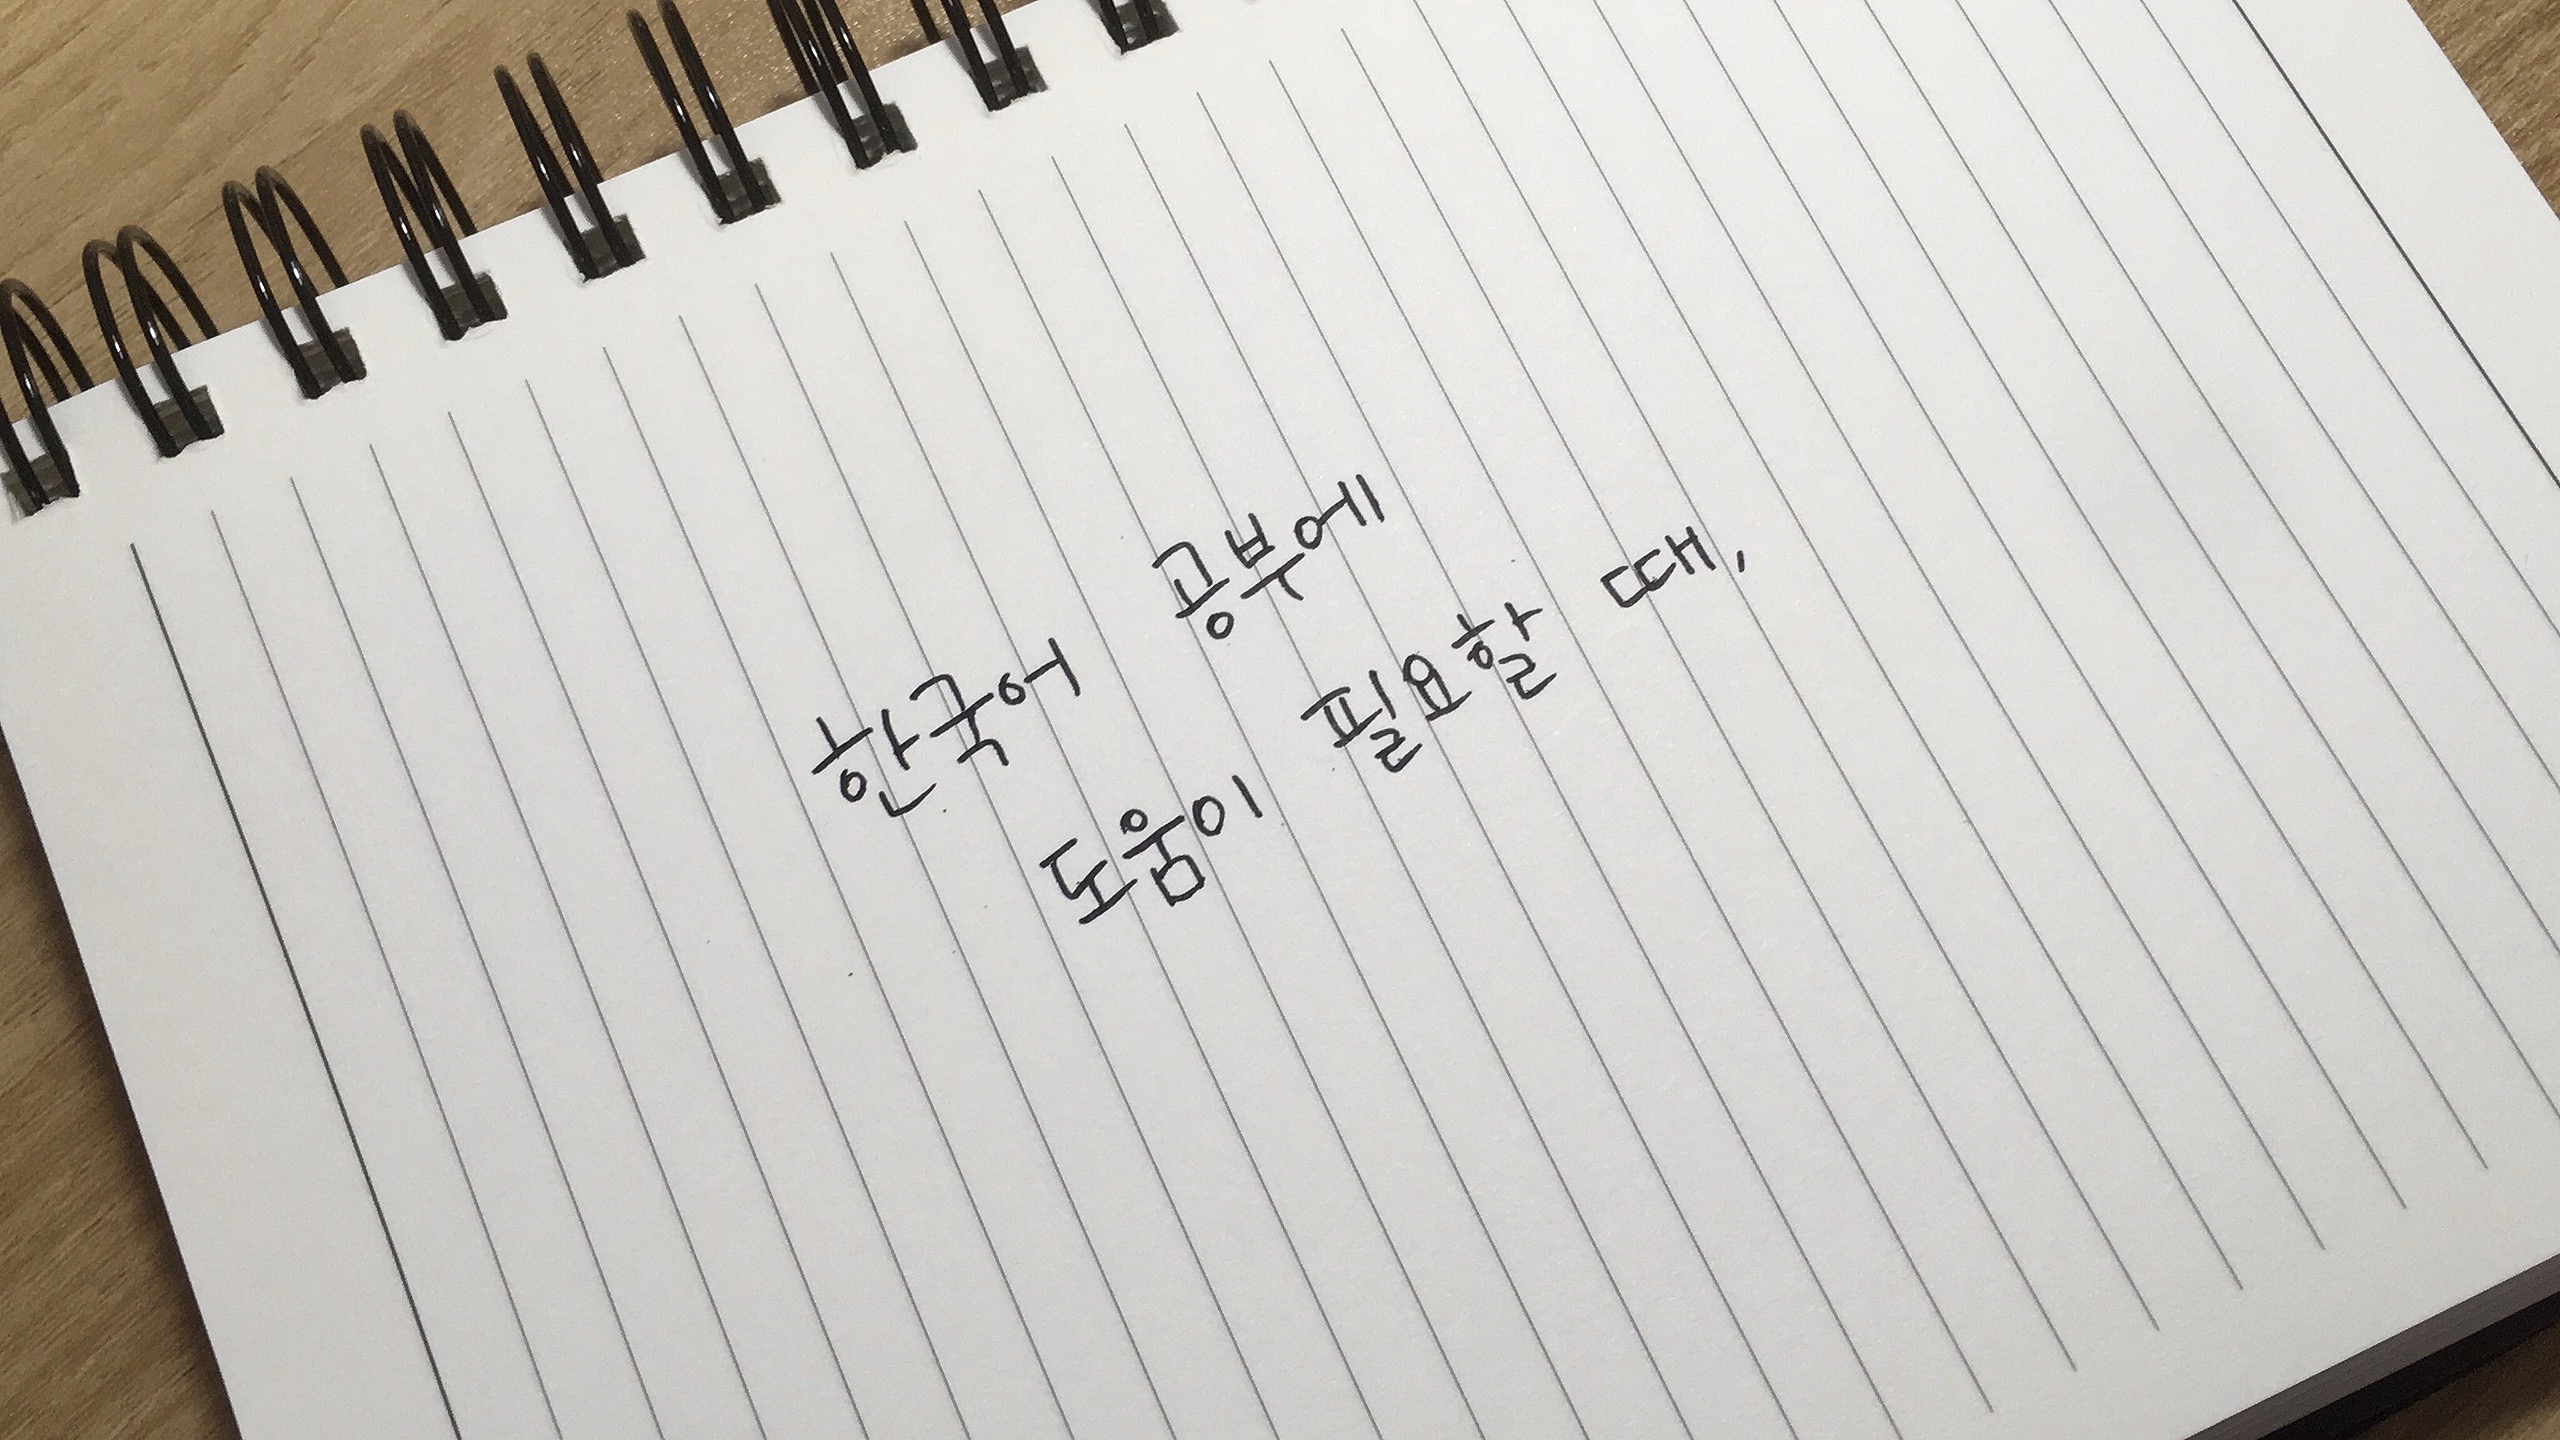 한국어 공부에
도움이 필요할 때,